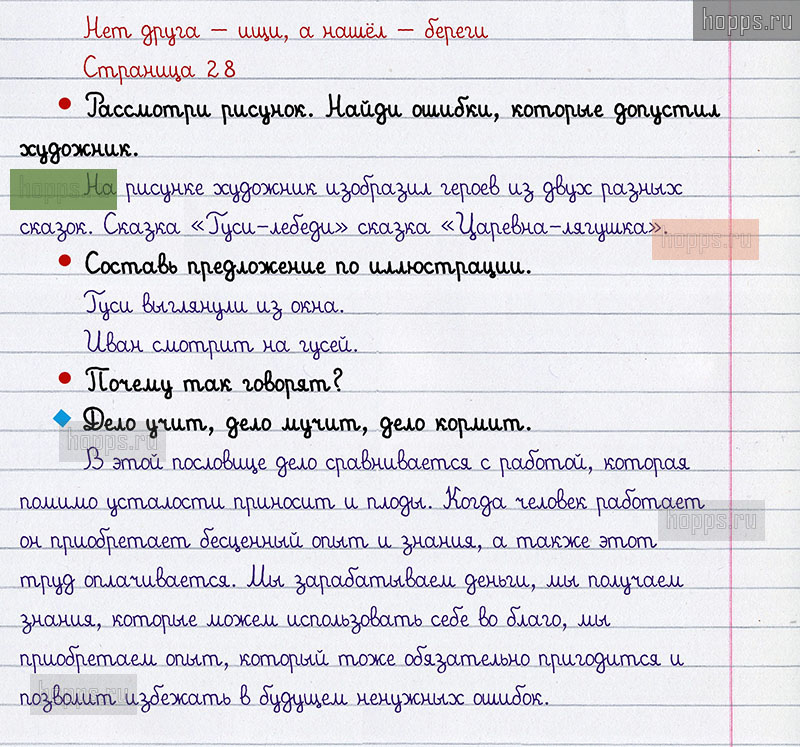 hopps.ru
Нет друга – ищи, а нашёл – береги
Страница 28
• Рассмотри рисунок. Найди ошибки, которые допустил
художник.
hopps.ru На рисунке художник изобразил героев из двух разных
сказок. Сказка «Гуси-лебеди» сказка «Царевна-лягушка».
hopps.ru
• Составь предложение по иллюстрации.
Гуси выглянули из окна.
Иван смотрит на гусей.
• Почему так говорят?
◆ Дело учит, дело мучит, дело кормит.
hopps.ru
В этой пословице дело сравнивается с работой, которая
помимо усталости приносит и плоды. Когда человек работает
hopps.ru
он приобретает бесценный опыт и знания, а также этот
труд оплачивается. Мы зарабатываем деньги, мы получаем
знания, которые можем использовать себе во благо, мы
приобретаем опыт, который тоже обязательно пригодится и
позволит избежать в будущем ненужных ошибок.
hopps.ru